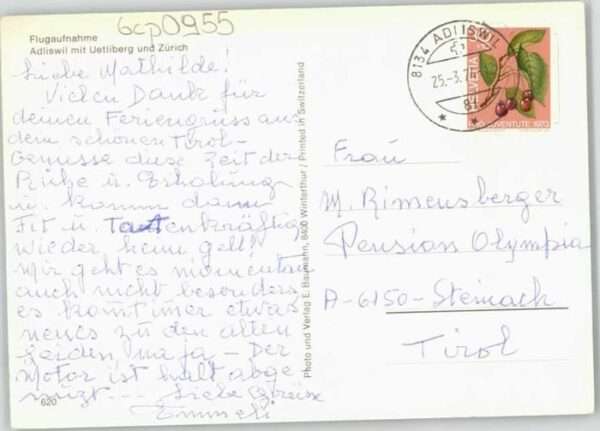 6cp0955
Flugaufnahme
Adliswil mit Uetliberg und Zürich
Liebe Mathilde!
Vielen Dank für
deinen Feriengruss aus
dem schönen Tirol-
Geniesse diese Zeit der
Ruhe u. Erholung
u. komm dann
Fit u. Tatenkräftig
wieder heim gell!
Mir geht es momentan
auch nicht besonders
es komt imer etwas
neues zu den alten
Leiden, na ja - Der
Motor ist halt abge
nüzt... Liebe Grüsse
Emmeli
620
Photo und Verlag E. Baumann, 8400 Winterthur / Printed in Switzerland
8134 ADLISWIL
25.-3.74
HELVETIA
JUVENTUTE
Frau
M. Rimensberger
Pension Olympia
A-6150-Steinach
Tirol